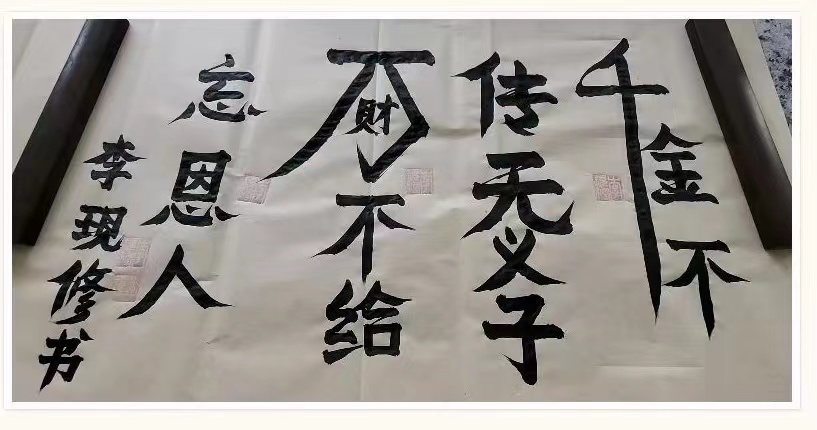 千金不
传无义子
万財不给
忘恩人
李现修书